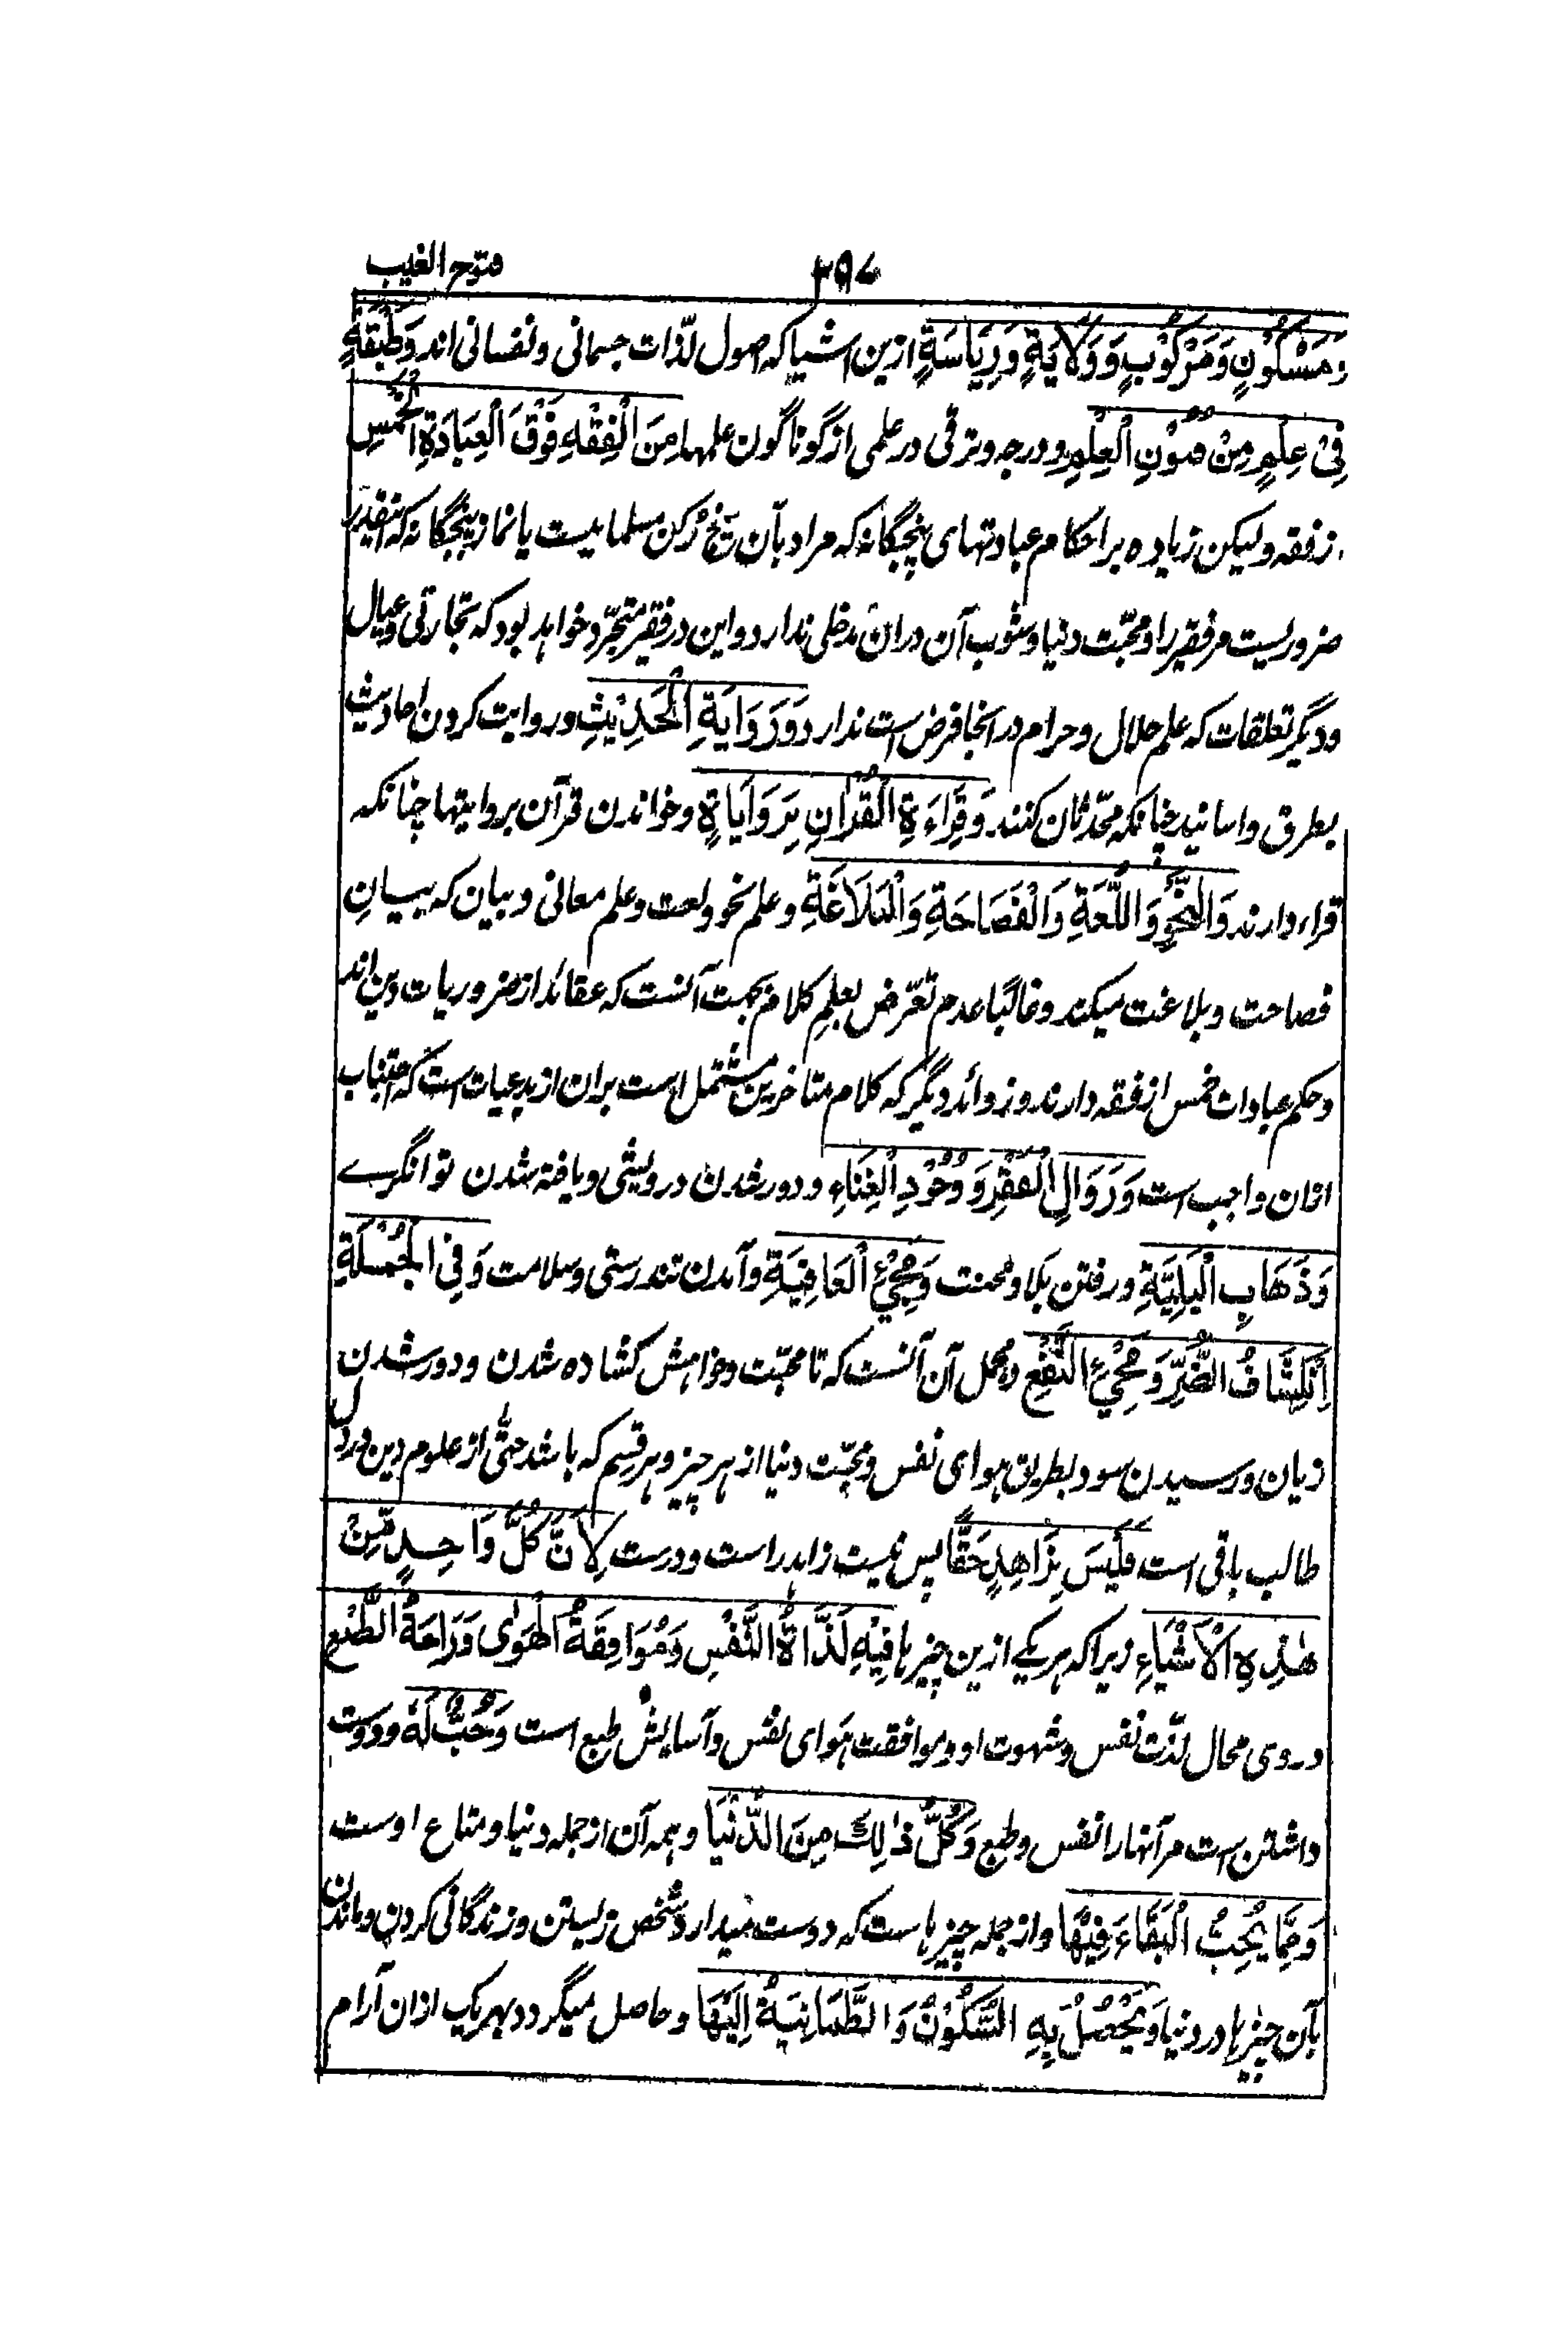 فتوح الغیب
وَمَسْكُوْنٍ وَمَرْكُوْبٍ وَوِلَايَةٍ وَرِيَاسَةٍ ازین اشیا که اصول لذّات جسمانی و نفسانی اند وَطَبَقَةٍ
فِیْ عِلْمٍ مِنْ فُنُوْنِ الْعِلْمِ و درجه و ترقی در علمی از گوناگون علمها مِنَ الْفِقْهِ فَوْقَ الْعِبَادَةِ الْخَمْسِ
از فقه ولیکن زیاده بر احکام عبادتهای پنجگانه که مراد بآن پنج رُکن مسلمانیست یا نماز پنجگانه که اینقدر
ضروریست مر فقیر را و محبّت دنیا و شوب آن دران مدخلی ندارد و این در فقیر متجرّد خواهد بود که تجارتی و عیال
و دیگر تعلقات که علم حلال و حرام در انجا فرض است ندارد وَرِوَايَةِ الْحَدِيْثِ و روایت کردن احادیث
بطرق و اسانید چنانکه محدّثان کنند وَقِرَاءَةِ الْقُرْاٰنِ بِرَوَايَاتِهٖ و خواندن قرآن بروایتها چنانکه
قراء دارند وَالنَّحْوِ وَاللُّغَةِ وَالْفَصَاحَةِ وَالْبَلَاغَةِ و علم نحو و لغت و علم معانی و بیان که بیانِ
فصاحت و بلاغت میکند و غالبًا عدم تعرّض بعلمِ کلام بجهت آنست که عقائد از ضروریات دین اند
و حکم عبادات خمس از فقه دارند و زوائد دیگر که کلام متاخرین مشتمل است بران از بدعیات است که اجتناب
ازان واجب است وَزَوَالِ الْفَقْرِ وَ وُجُوْدِ الْغِنَاءِ و دور شدن درویشی و یافته شدن توانگرے
وَذَهَابِ الْبَلِيَّةِ و رفتن بلا و محنت وَمَجِيْءِ الْعَافِيَةِ و آمدن تندرستی و سلامت وَفِی الْجُمْلَةِ
اِنْكِشَافُ الضُّرِّ وَمَجِيْءِ النَّفْعِ و مجمل آن آنست که تا محبّت و خواهش کشاده شدن و دور شدن
زیان و رسیدن سود بطریق هوای نفس و محبّت دنیا از هر چیز و هر قسم که باشد حتّٰی از علوم دین در دل
طالب باقی است فَلَيْسَ بِزَاهِدٍ حَقًّا پس نیست زاهد راست و درست لِاَنَّ كُلَّ وَاحِدٍ مِّنْ
هٰذِهِ الْاَشْيَاءِ زیرا که هر یکے ازین چیزها فِيْهِ لَذَّةُ النَّفْسِ وَمُوَافِقَةُ الْهَوٰى وَرَاحَةُ الطَّبْعِ
در وی محال لذّت نفس و شهوت او و موافقت هوای نفس و آسایش طبع است وَحُبٌّ لَهٗ و دوست
داشتن است مر آنها را نفس و طبع وَكُلُّ ذٰلِكَ مِنَ الدُّنْيَا و همه آن از جمله دنیا و متاع اوست
وَمِمَّا يُحِبُّ الْبَقَاءَ فِيْهَا و از جمله چیزهاست که دوست میدارد شخص زیستن و زندگانی کردن و ماندن
بآن چیزها در دنیا وَيَحْصُلُ بِهِ السُّكُوْنُ وَالطُّمَانِيَةُ اِلَيْهَا و حاصل میگردد بهر یک ازان آرام